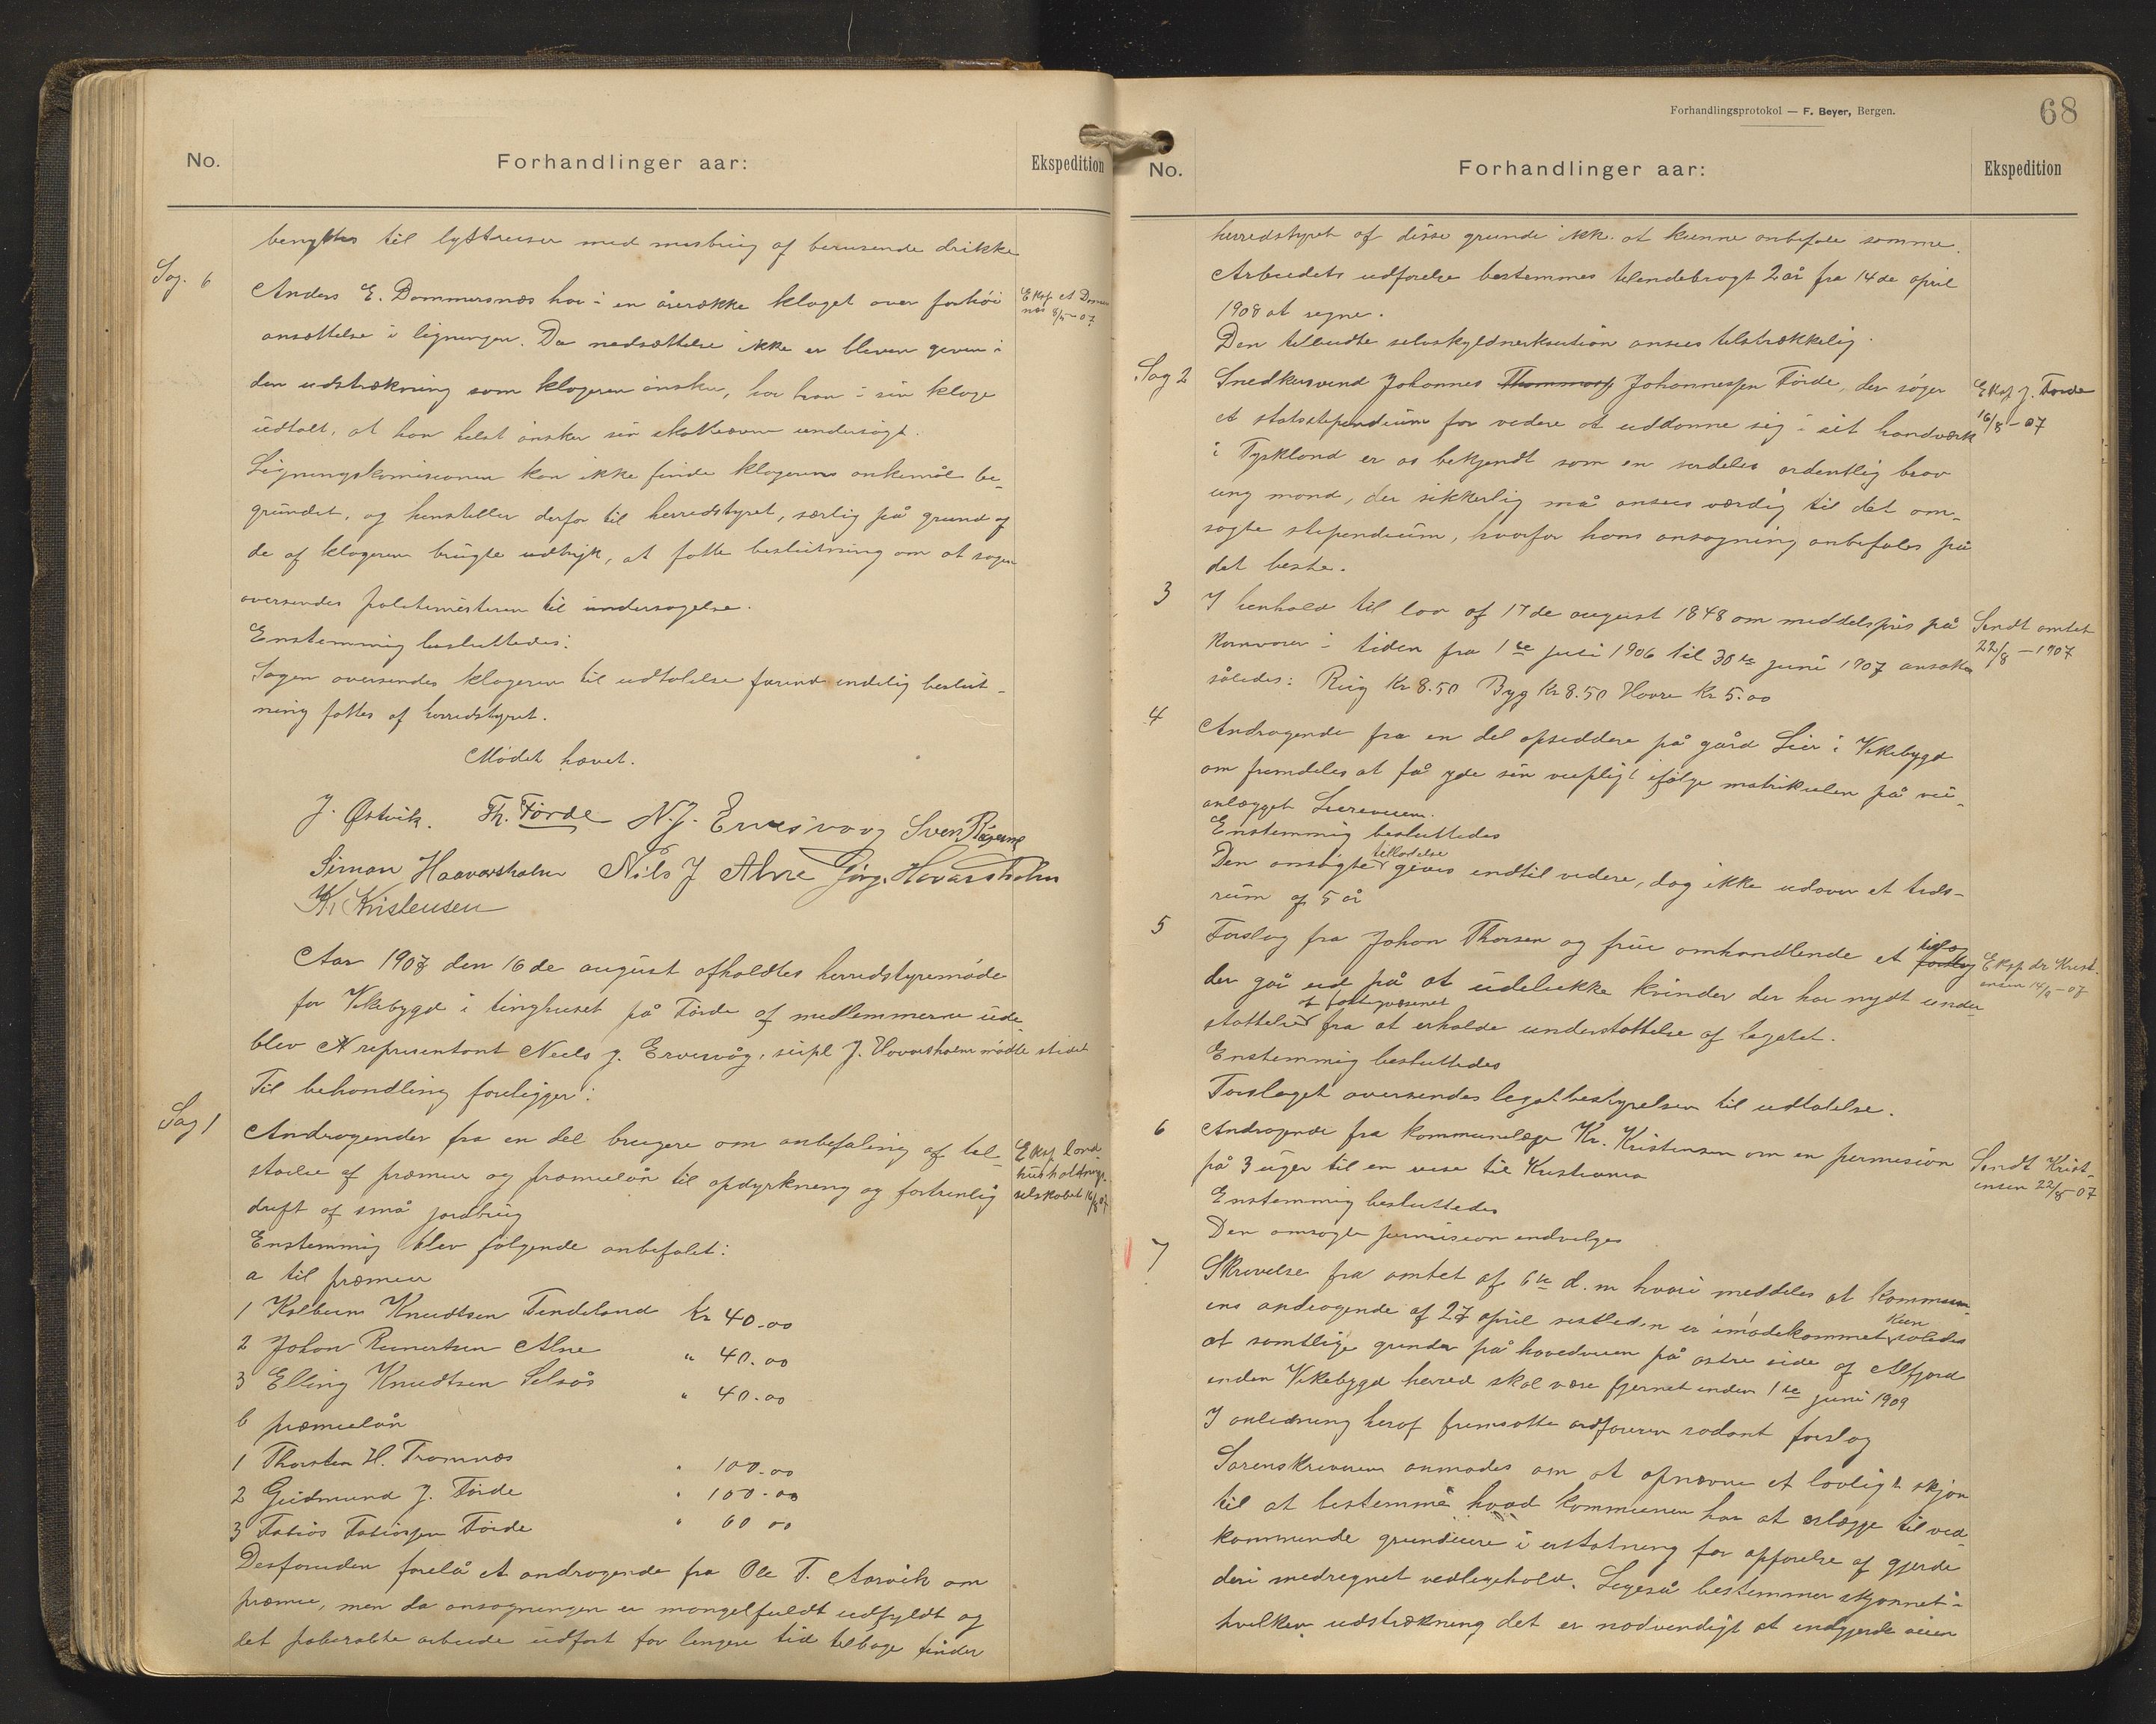 No. Forhandlinger aar: Ekspedition
benyttes til lystreiser med misbrug af berusende drikke
Sag. 6
Anders E. Dommersnæs har i en årrække klaget over forhöi
Eksp. A Dommers
næs 8/5-07
ansættelse i ligningen. Da nedsættelse ikke er bleven given i
den udstrækning som klageren önsker, har han i sin klage
udtalt, at han helst önsker sin skatteævne undersögt.
Ligningskomisionen kan ikke finde klagerens ankemål be-
grundet, og henstiller derfor til herredstyret, særlig på grund af
de af klageren brugte udtryk, at fatte beslutning om at sagen
oversendes politimesteren til undersøgelse.
Enstemmig besluttedes:
Sagen oversendes klageren til udtalelse førend endelig beslut-
ning fattes af herredstyret.
Mödet hævet.
J. Østvik. Th. Förde N. J. Ervesvaag Sven
Simon Haavarsholm Nils J Alne Jörg. Havarsholm
Kr Kristensen
Aar 1907 den 16de august afholdtes herredstyremöde
for Vikebygd i tinghuset på Förde af medlemmerne ude
blev repræsentant Neels J. Ervesvåg, supl J. Havarsholm mödte stedet
Til behandling foreligger:
Sag 1
Andragender fra en del brugere om anbefaling af til-
Eksp land
husholdnings-
selskabet 16/8 07
ståelse af præmier og præmielån til opdyrkning og fortrinlig
drift af små jordbrug
Enstemmig blev fölgende anbefalet:
a til præmier
1 Kolbein Knudtsen Tendeland Kr 40.00
2 Johan Reinertsen Alne " 40.00
3 Elling Knudtsen Selsås " 40.00
b præmielån
1 Thorsten H. Tromnæs " 100.00
2 Gudmund J. Förde " 100.00
3 Tobias Tobiassen Förde " 60 00
Desforuden forelå et andragende fra Ole T. Aarvik om
præmie, men da ansøgningen er mangelfuldt udfyldt og
det påberabte arbeide udfört for lengere tid tilbage finder
Forhandlingsprotokol — F. Beyer, Bergen.
68
No. Forhandlinger aar: Ekspedition
herredstyret af disse grunde ikke at kunne anbefale samme.
Arbeidets udförelse bestemmes tilendebragt 2 år fra 14de april
1908 at regne.
Den tilbudte selvskyldnerkaution ansees tilstrækkelig.
Sag 2
Snedkersvend Johannes Thommas Johannessen Förde, der söger
Eksp J. Förde
16/8-07
et statsstipendium for videre at uddanne sig i sit håndværk
i Tyskland er os bekjendt som en serdeles ordentlig brav
ung mand, der sikkerlig må ansees værdig til det om-
søgte stipendium, hvorfor hans ansøgning anbefales på
det beste.
3
I henhold til lov af 17de august 1848 om middelspris på
Sendt amtet
22/8-1907
Kornvarer i tiden fra 1ste juli 1906 til 30te juni 1907 ansættes
således: Rug Kr 8.50 Byg Kr 8.50 Havre Kr 5.00
4
Andragende fra en del opsiddere på gård Lier i Vikebygd
om fremdeles at få yde sin veipligt ifölge matrikulen på vei-
anlægget Liereveien.
Enstemmig besluttedes
Den ansögte tilladelse gives indtil videre, dog ikke udover et tids-
rum af 5 år
5
Forslag fra Johan Thorsen og frue omhandlende et forslag tillæg
Eksp dr Krist-
ensen 14/9-07
der går ud på at udelukke kvinder der har nydt under
støttelse af fattigvæsenet fra at erholde understøttelse af legatet.
Enstemmig besluttedes
Forslaget oversendes legatbestyrelsen til udtalelse.
6
Andragende fra kommunelæge Kr. Kristensen om en permision
Sendt Krist-
ensen 22/8-07
på 3 uger til en reise til Kristiania
Enstemmig besluttedes
Den omsøgte permision indvilges
7
Skrivelse fra amtet af 6te d.m hvori meddeles at kommun-
ens andragende af 27 april sistleden er imödekommet kun således
at samtlige grinder på hovedveien på østre side af Alfjord
inden Vikebygd herred skal være fjernet inden 1ste juni 1909
I anledning heraf fremsatte ordføreren sådant forslag
Sorenskriveren anmodes om at opnævne et lovligt skjön
til at bestemme hvad kommunen har at erlægge til ved-
kommende grundeiere i erstatning for opførelse af gjerde
deri medregnet vedlegehold. Ligeså bestemmer skjønnet i
hvilken udstrækning det er nødvendigt at indgjerde veien